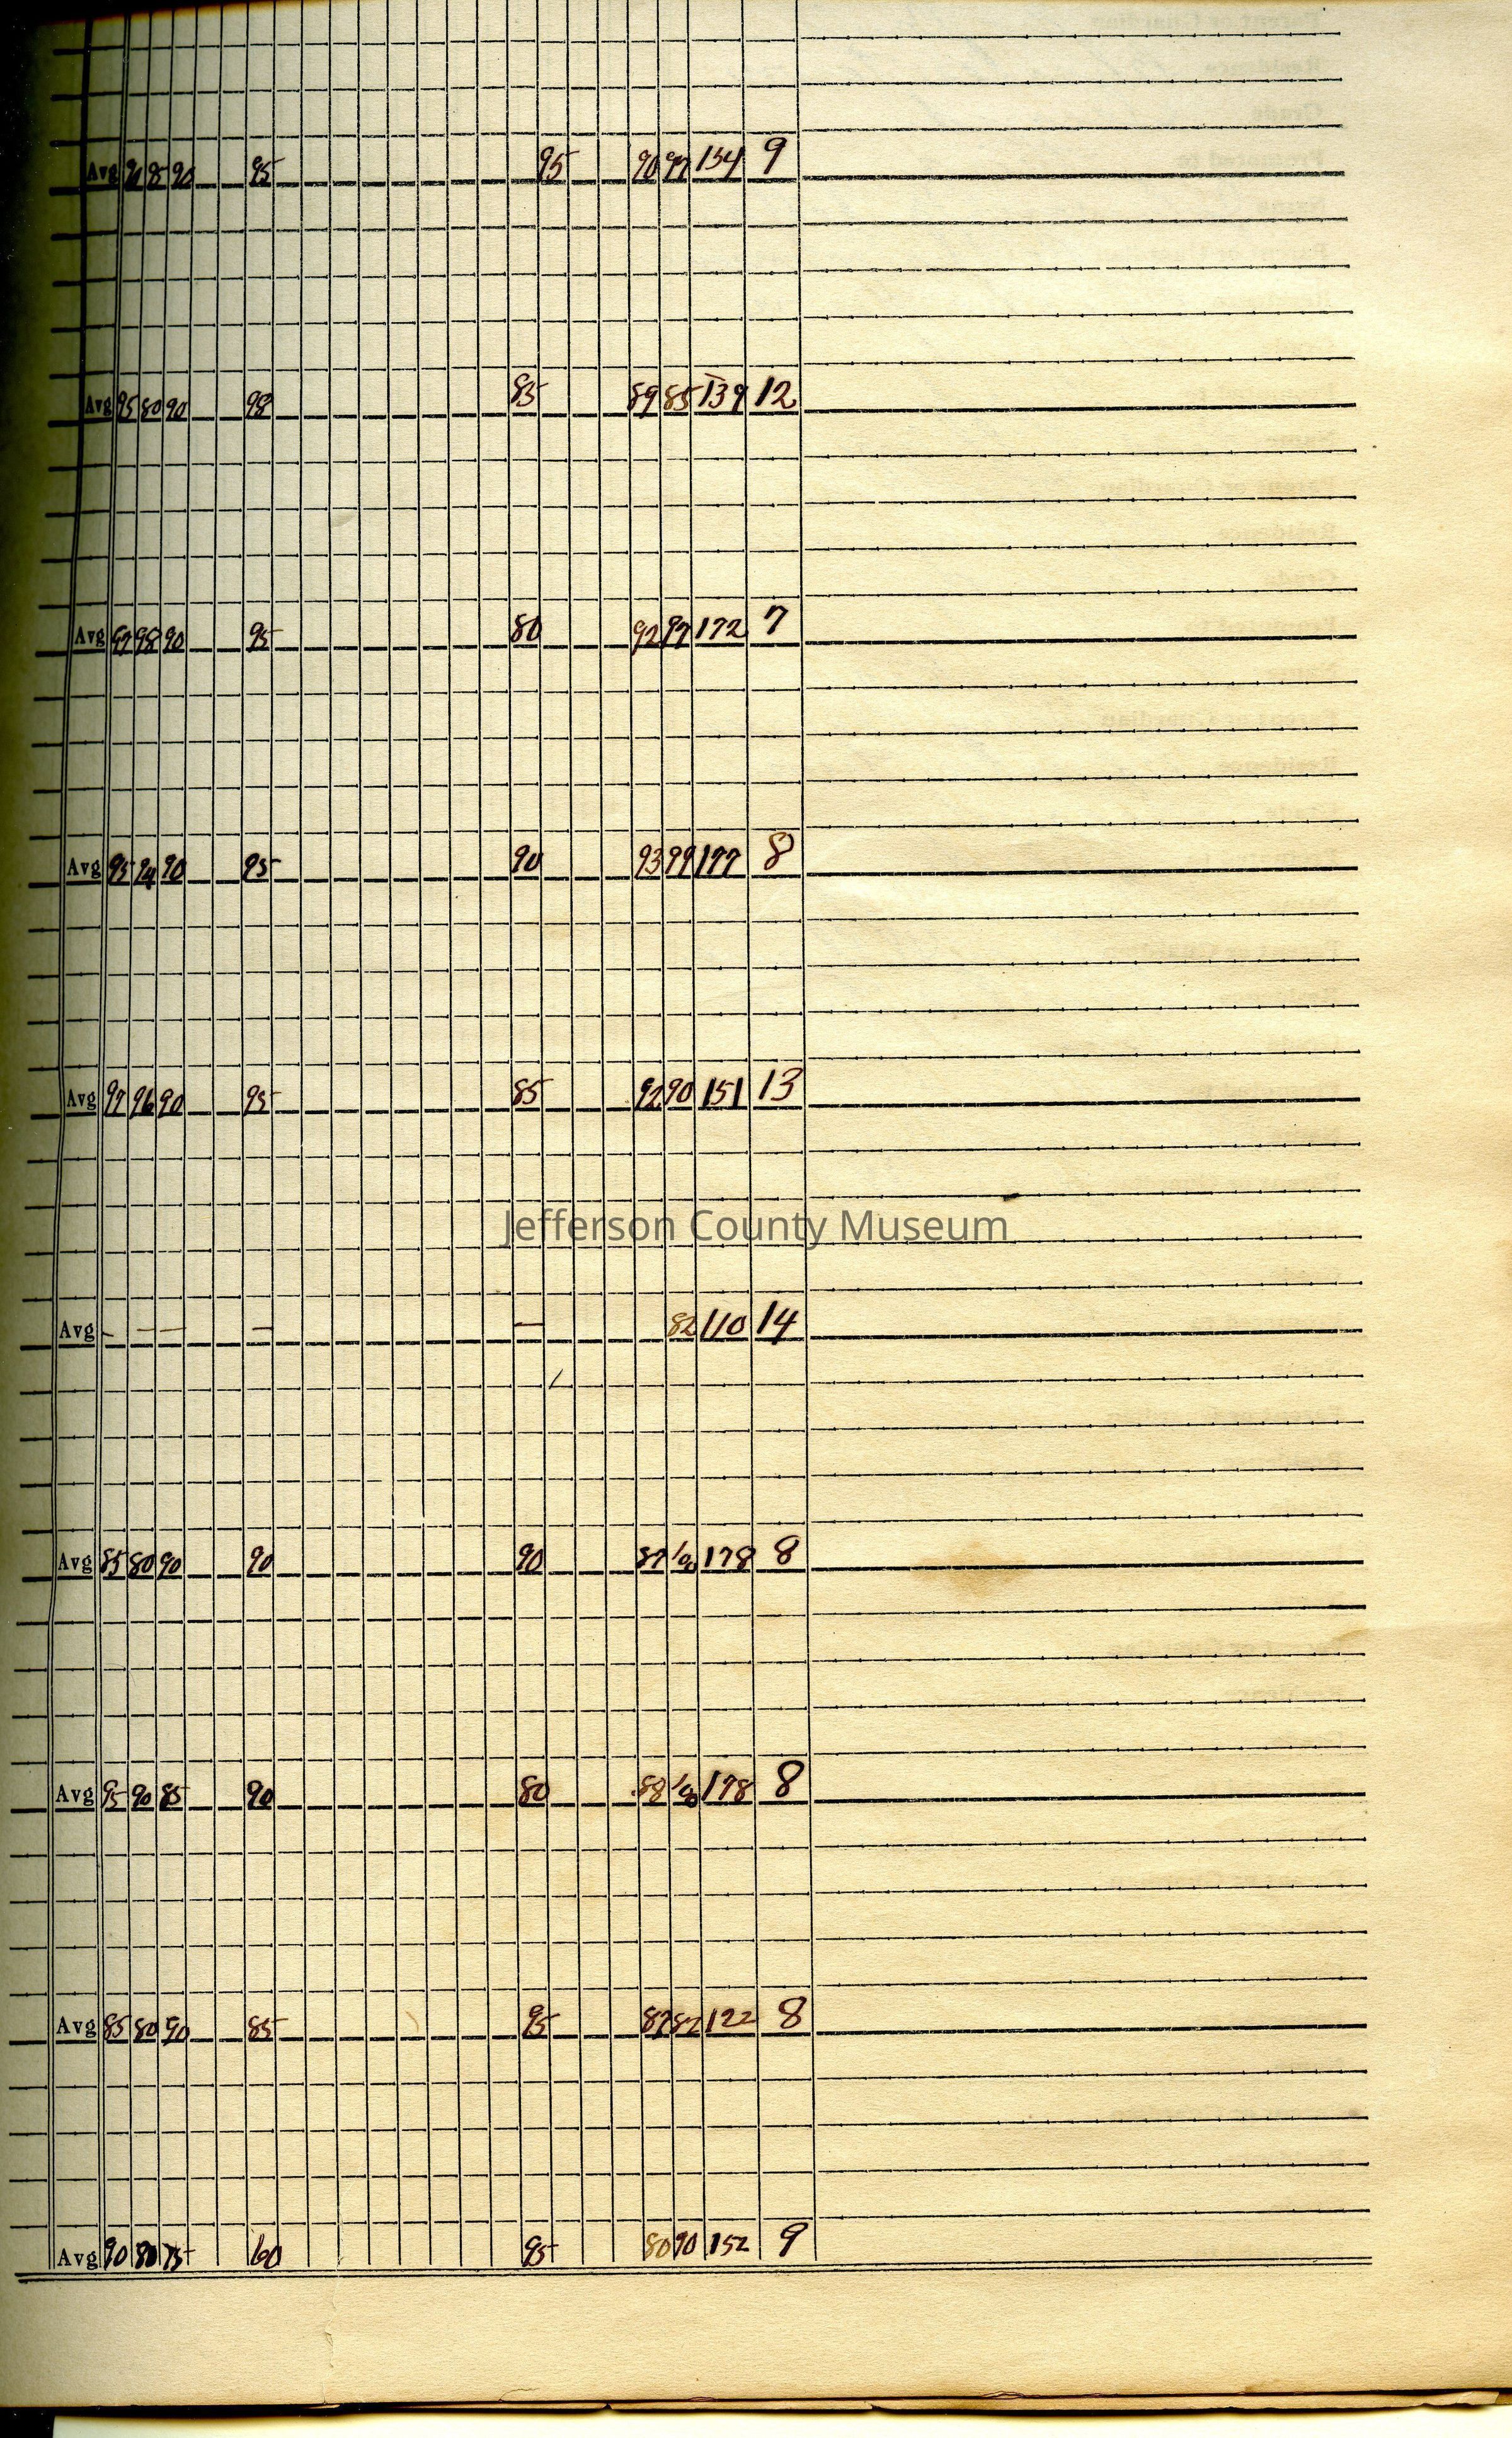 Avg 90 8 90 95 95 90 97 154 9
Avg 95 80 90 98 85 89 85 139 12
Avg 97 98 90 95 80 92 97 172 7
Avg 95 94 90 95 90 93 99 177 8
Avg 97 96 90 95 85 92 90 151 13
Jefferson County Museum
Avg - - - - - 82 110 14
Avg 85 80 90 90 90 87 100 178 8
Avg 95 90 85 90 80 88 100 178 8
Avg 85 80 90 85 95 87 82 122 8
Avg 90 80 75 60 95 80 90 152 9